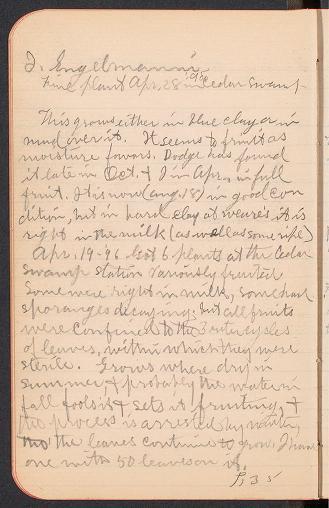 I. Engelmanni
Fine plant Apr. 28 in Cedar Swamp
This grows either in blue clay or in
mud over it. It seems to fruit as
moisture favors. Dodge has found
it late in Oct. & I in Apr. in full
fruit. It is now (aug 18) in good con
dition, but in hard clay at it is
right in the milk (as well as some ripe)
Apr. 19-96 Got 6 plants at the Cedar
Swamp station variously fruited
Some were right in milk, some had
sporanges decaying; but all fruits
were confined to the 3 outer cycles
of leaves, within which they were
sterile. Grows where dry in
summer & probably the water in
fall & sets it fruiting, &
the process is arrested by winter,
the leaves continue to grow. I have
one with 50 leaves on it.
P. 35